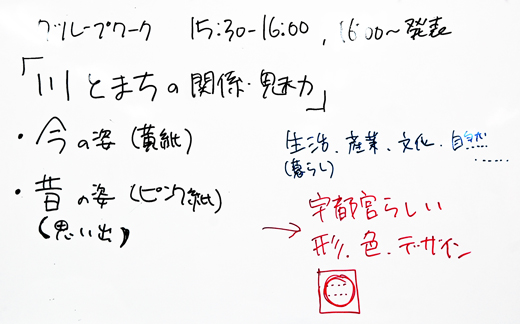 グループワーク 15:30-16:00, 16:00〜発表
「川とまちの関係・魅力」
・今の姿(黄紙)
・昔の姿(ピンク紙)
(思い出)
生活、産業、文化、自然……
(暮らし)
→ 宇都宮らしい
形、色、デザイン